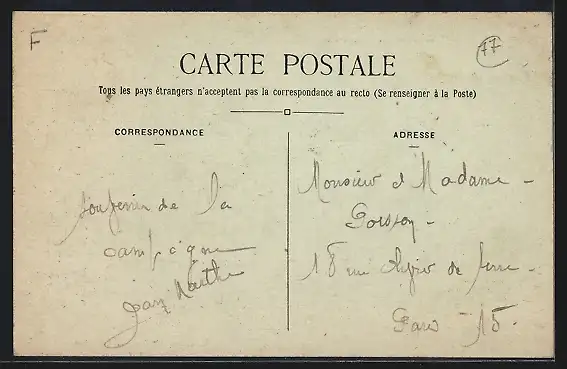 F
77
CARTE POSTALE
Tous les pays étrangers n'acceptent pas la correspondance au recto (Se renseigner à la Poste)
CORRESPONDANCE
ADRESSE
Souvenir de la
campagne
Marthe
Monsieur et Madame -
18 rue de -
Paris - 15.